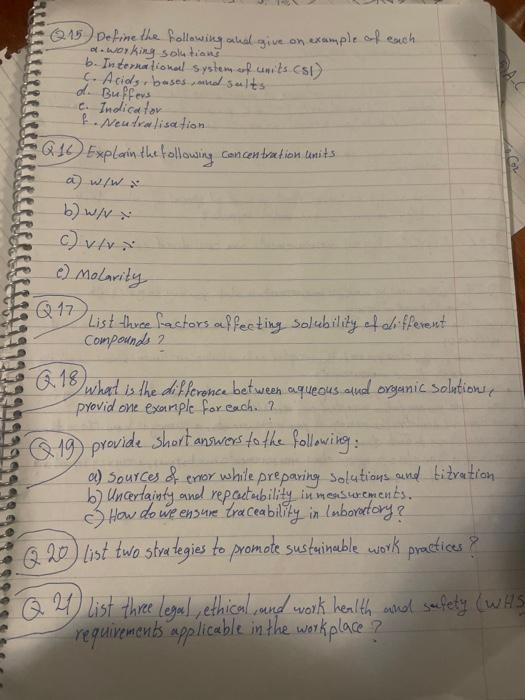 Q15) Define the following and give an example of each
a. working solutions
b. International system of units (SI)
c. Acids, bases, and salts
d. Buffers
e. Indicator
f. Neutralisation
Q16) Explain the following concentration units
a) w/w %
b) w/v %
c) v/v %
e) Molarity
Q17
List three factors affecting solubility of different
compounds?
Q.18) what is the difference between aqueous and organic solutions,
provid one example for each. ?
Q19) provide short answers to the following:
a) Sources of error while preparing solutions and titration
b) Uncertainty and repeatability in measurements.
c) How do we ensure traceability in laboratory?
Q 20) list two strategies to promote sustainable work practices?
Q 21) List three legal, ethical, and work health and safety (WHS
requirements applicable in the workplace?